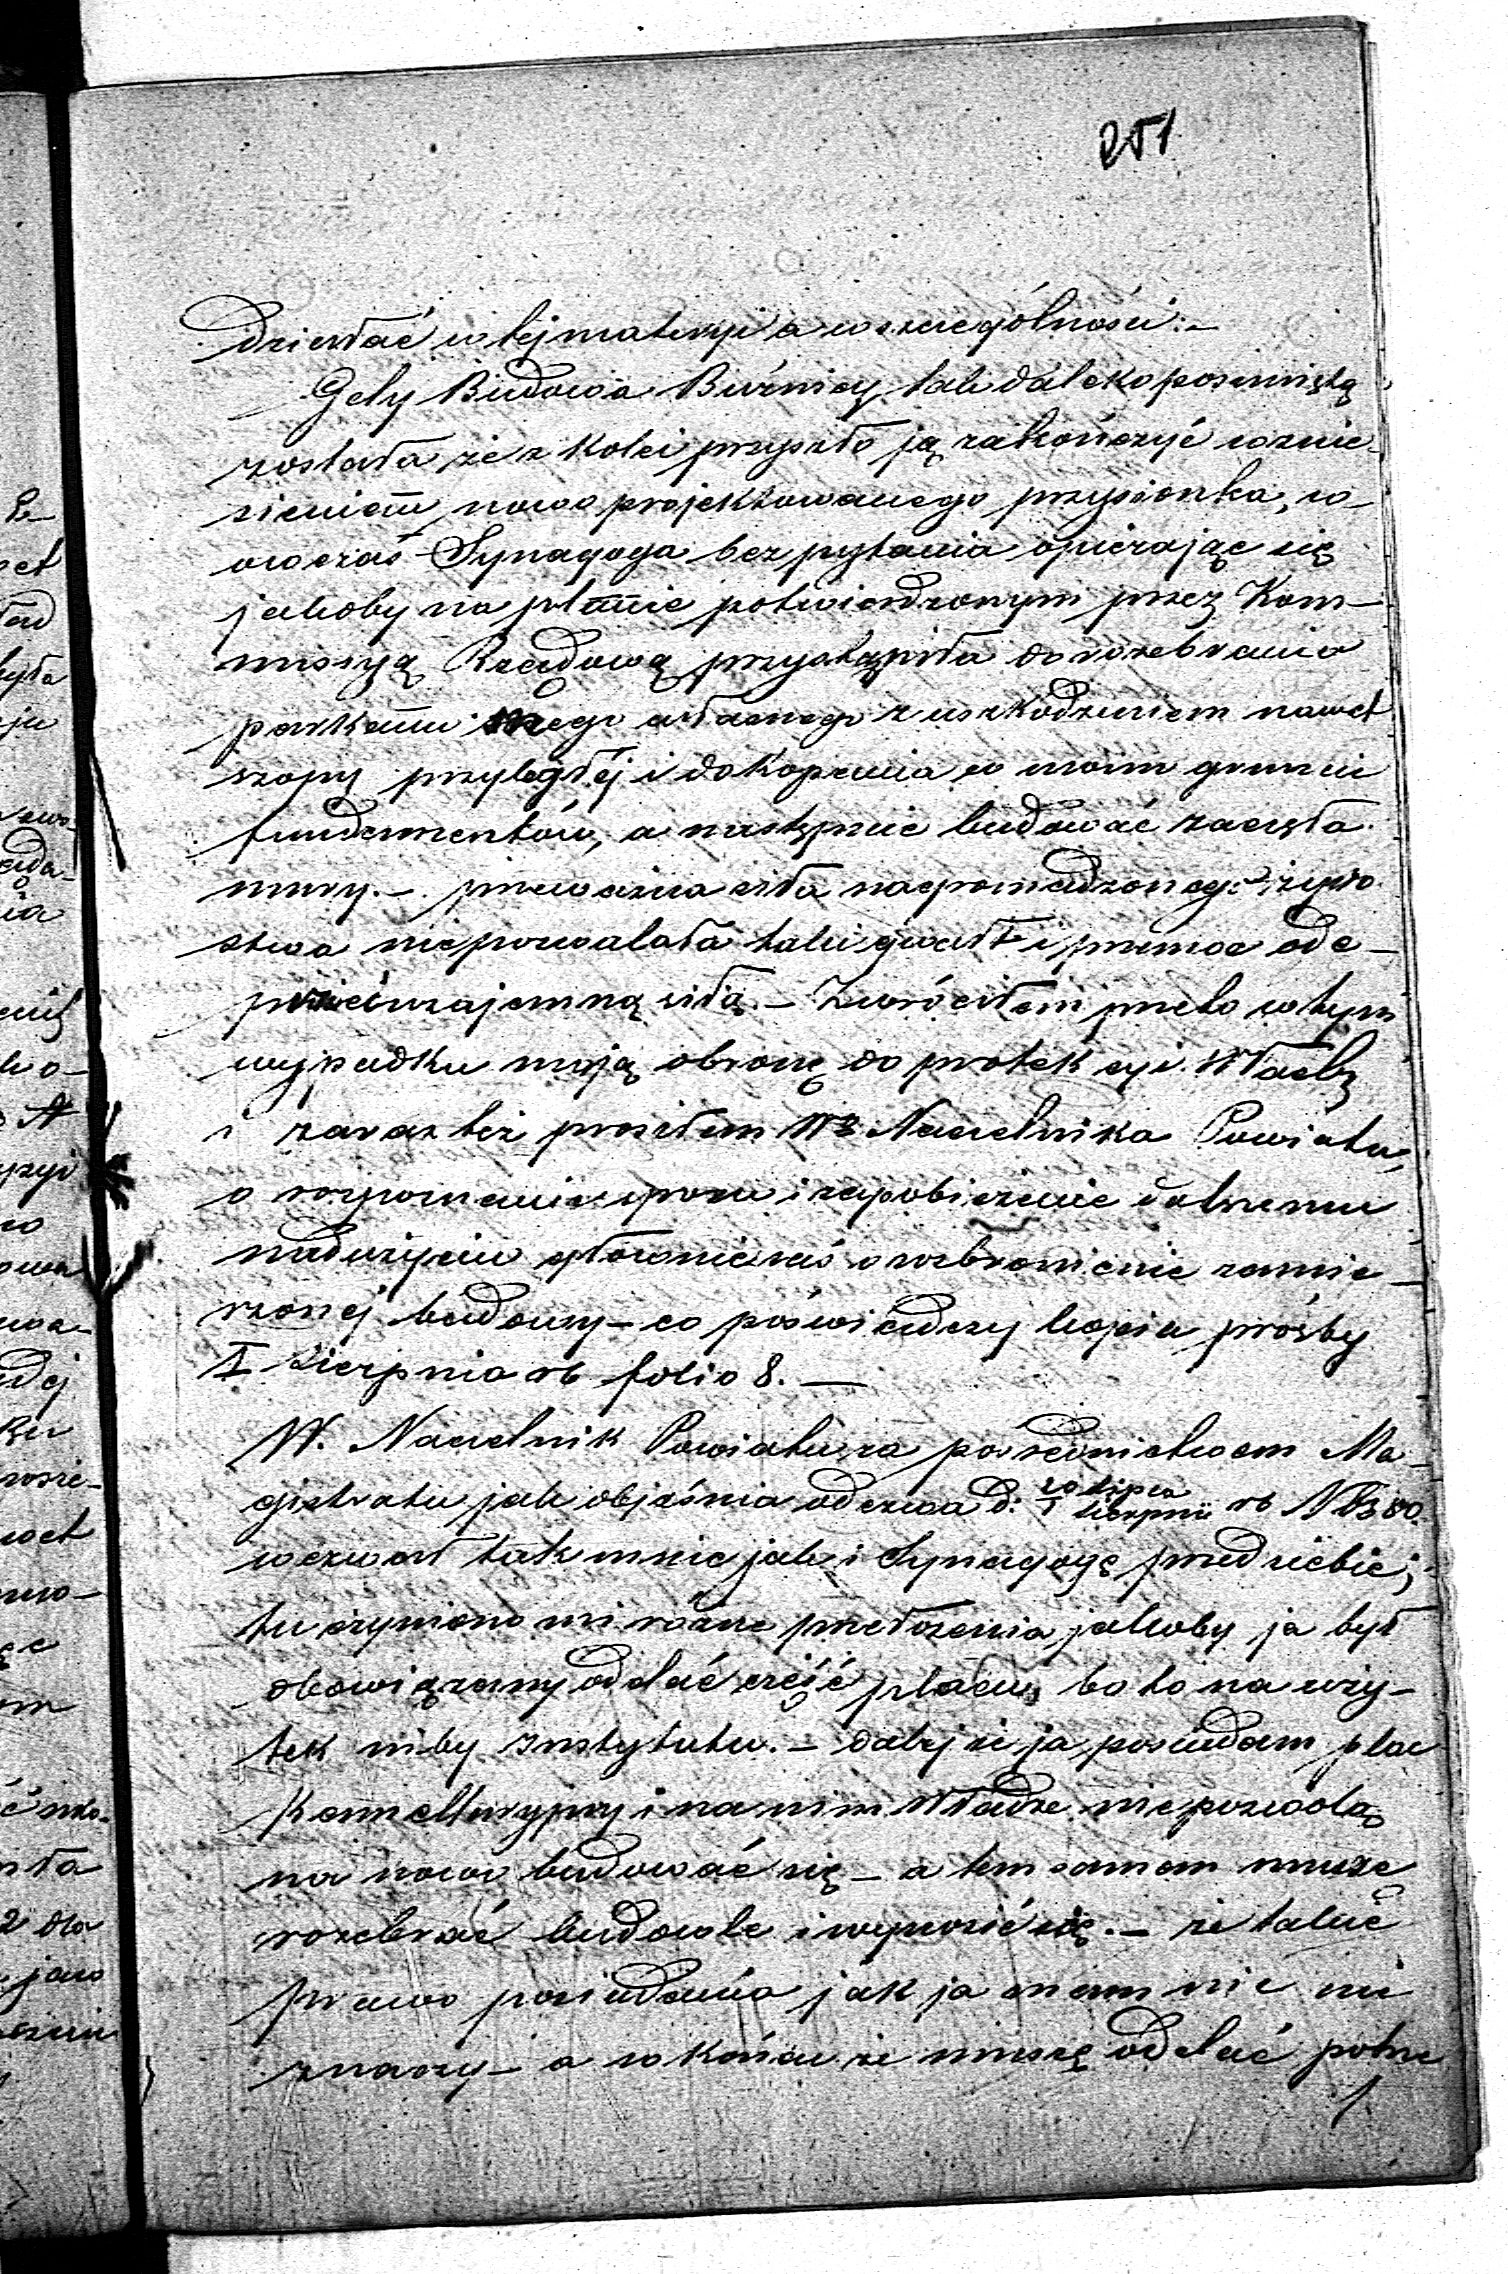 251
działać w tej materyi a w szczególności: –
Gdy Budowa Bużnicy tak daleko posuniętą
została że z kolei przyszło ją zakończyć wznie-
sieniem nowo projektowanego przysionka, w-
owczas Synagoga bez pytania opierając się
jakoby na planie potwierdzonym przez Kom-
missyą Rządową przystąpiła do rozebrania
parkanu mego własnego z uszkodzeniem nawet
szopy przyległej i dokopania w moim gruncie
fundamentów, a następnie budować zaczęła
mury. – przeważna siła nagromadzonego żydo-
stwa niepozwalała taki gwałt i przemoc ode-
przeć wzajemną siłą. – Zwróciłem przeto w tym
wypadku moją obronę do protekcyi Władz
i zaraz też prosiłem Naczelnika Powiatu,
o rozpoznanie sporu i zapobieżenie dalszemu
nadużyciu głównie zaś o wzbronienie zamie-
rzonej budowy – co poświadczy kopia prośby
1 Sierpnia rb folio 8. –
W. Naczelnik Powiatu za pośrednictwem Ma-
gistratu jak objaśnia odezwa d: 20 Lipca
1 Sierpnia rb
wezwał tak mnie jak i Synagogę przed siebie;
tu czyniono mi różne przełożenia jakoby ja był
obowiązany oddać część placu, bo to na uży-
tek niby Instytutu. – dalej że ja posiadam plac
i na nim Władze niepozwolą
na nowo budować się – a tem samem muszę
rozebrać budowle i wynosić się. – że takie
prawo posiadania jak ja mam nic nie
znaczy – a w końcu że muszę oddać potrze